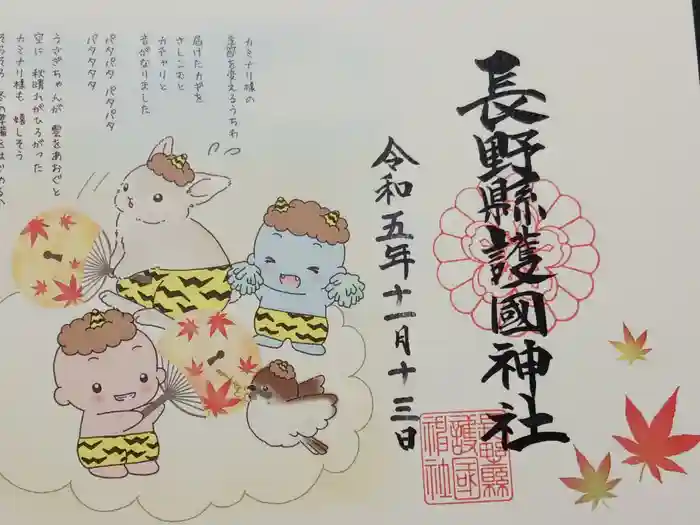 長野縣護國神社
令和五年十一月十三日
長野縣護國神社
カミナリ様の
季節を変えるうちわ
届けたカギを
さしこむと
カチャリと
音がなりました
パタパタ パタパタ
パタタタタ
うさぎちゃんが 雲をあおぐと
空に 秋晴れがひろがった
カミナリ様も 嬉しそう